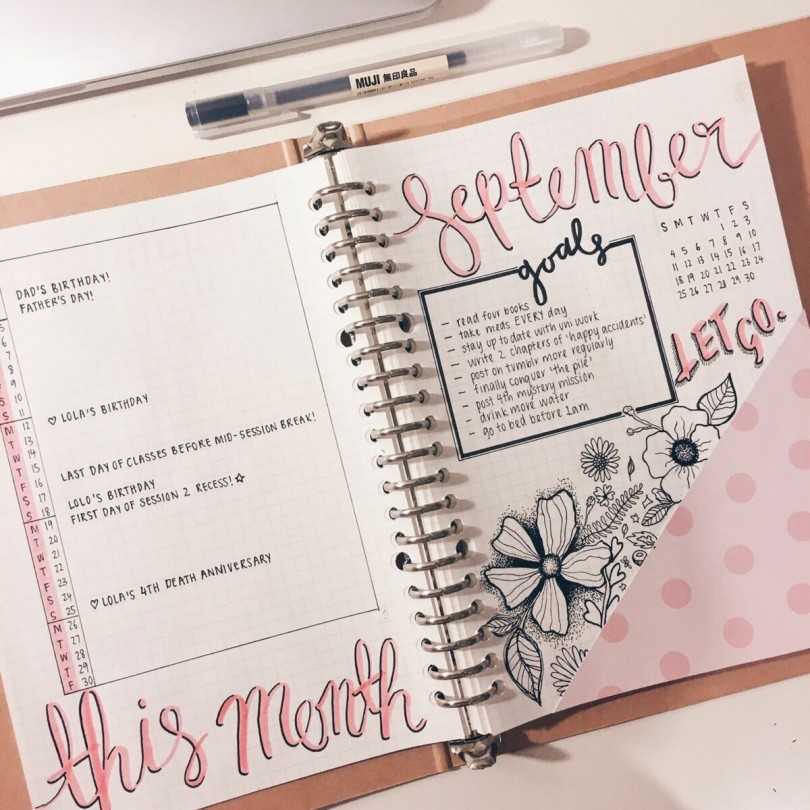 MUJI 無印良品
DAD'S BIRTHDAY!
FATHER'S DAY!
5
6
7
8
9
S 10
S 11
♡ LOLA'S BIRTHDAY
M 12
T 13
W 14
T 15
LAST DAY OF CLASSES BEFORE MID-SESSION BREAK!
F 16
LOLO'S BIRTHDAY
S 17
FIRST DAY OF SESSION 2 RECESS! ☆
S 18
M 19
T 20
W 21
T 22
F 23
♡ LOLA'S 4TH DEATH ANNIVERSARY
S 24
S 25
M 26
T 27
W 28
T 29
F 30
this month
September
goals
– read four books
– take meds EVERY day
– stay up to date with uni work
– write 2 chapters of 'happy accidents'
– post on tumblr more regularly
– finally conquer 'the pile'
– post 4th mystery mission
– drink more water
– go to bed before 1am
S M T W T F S
1 2 3
4 5 6 7 8 9 10
11 12 13 14 15 16 17
18 19 20 21 22 23 24
25 26 27 28 29 30
LET GO.